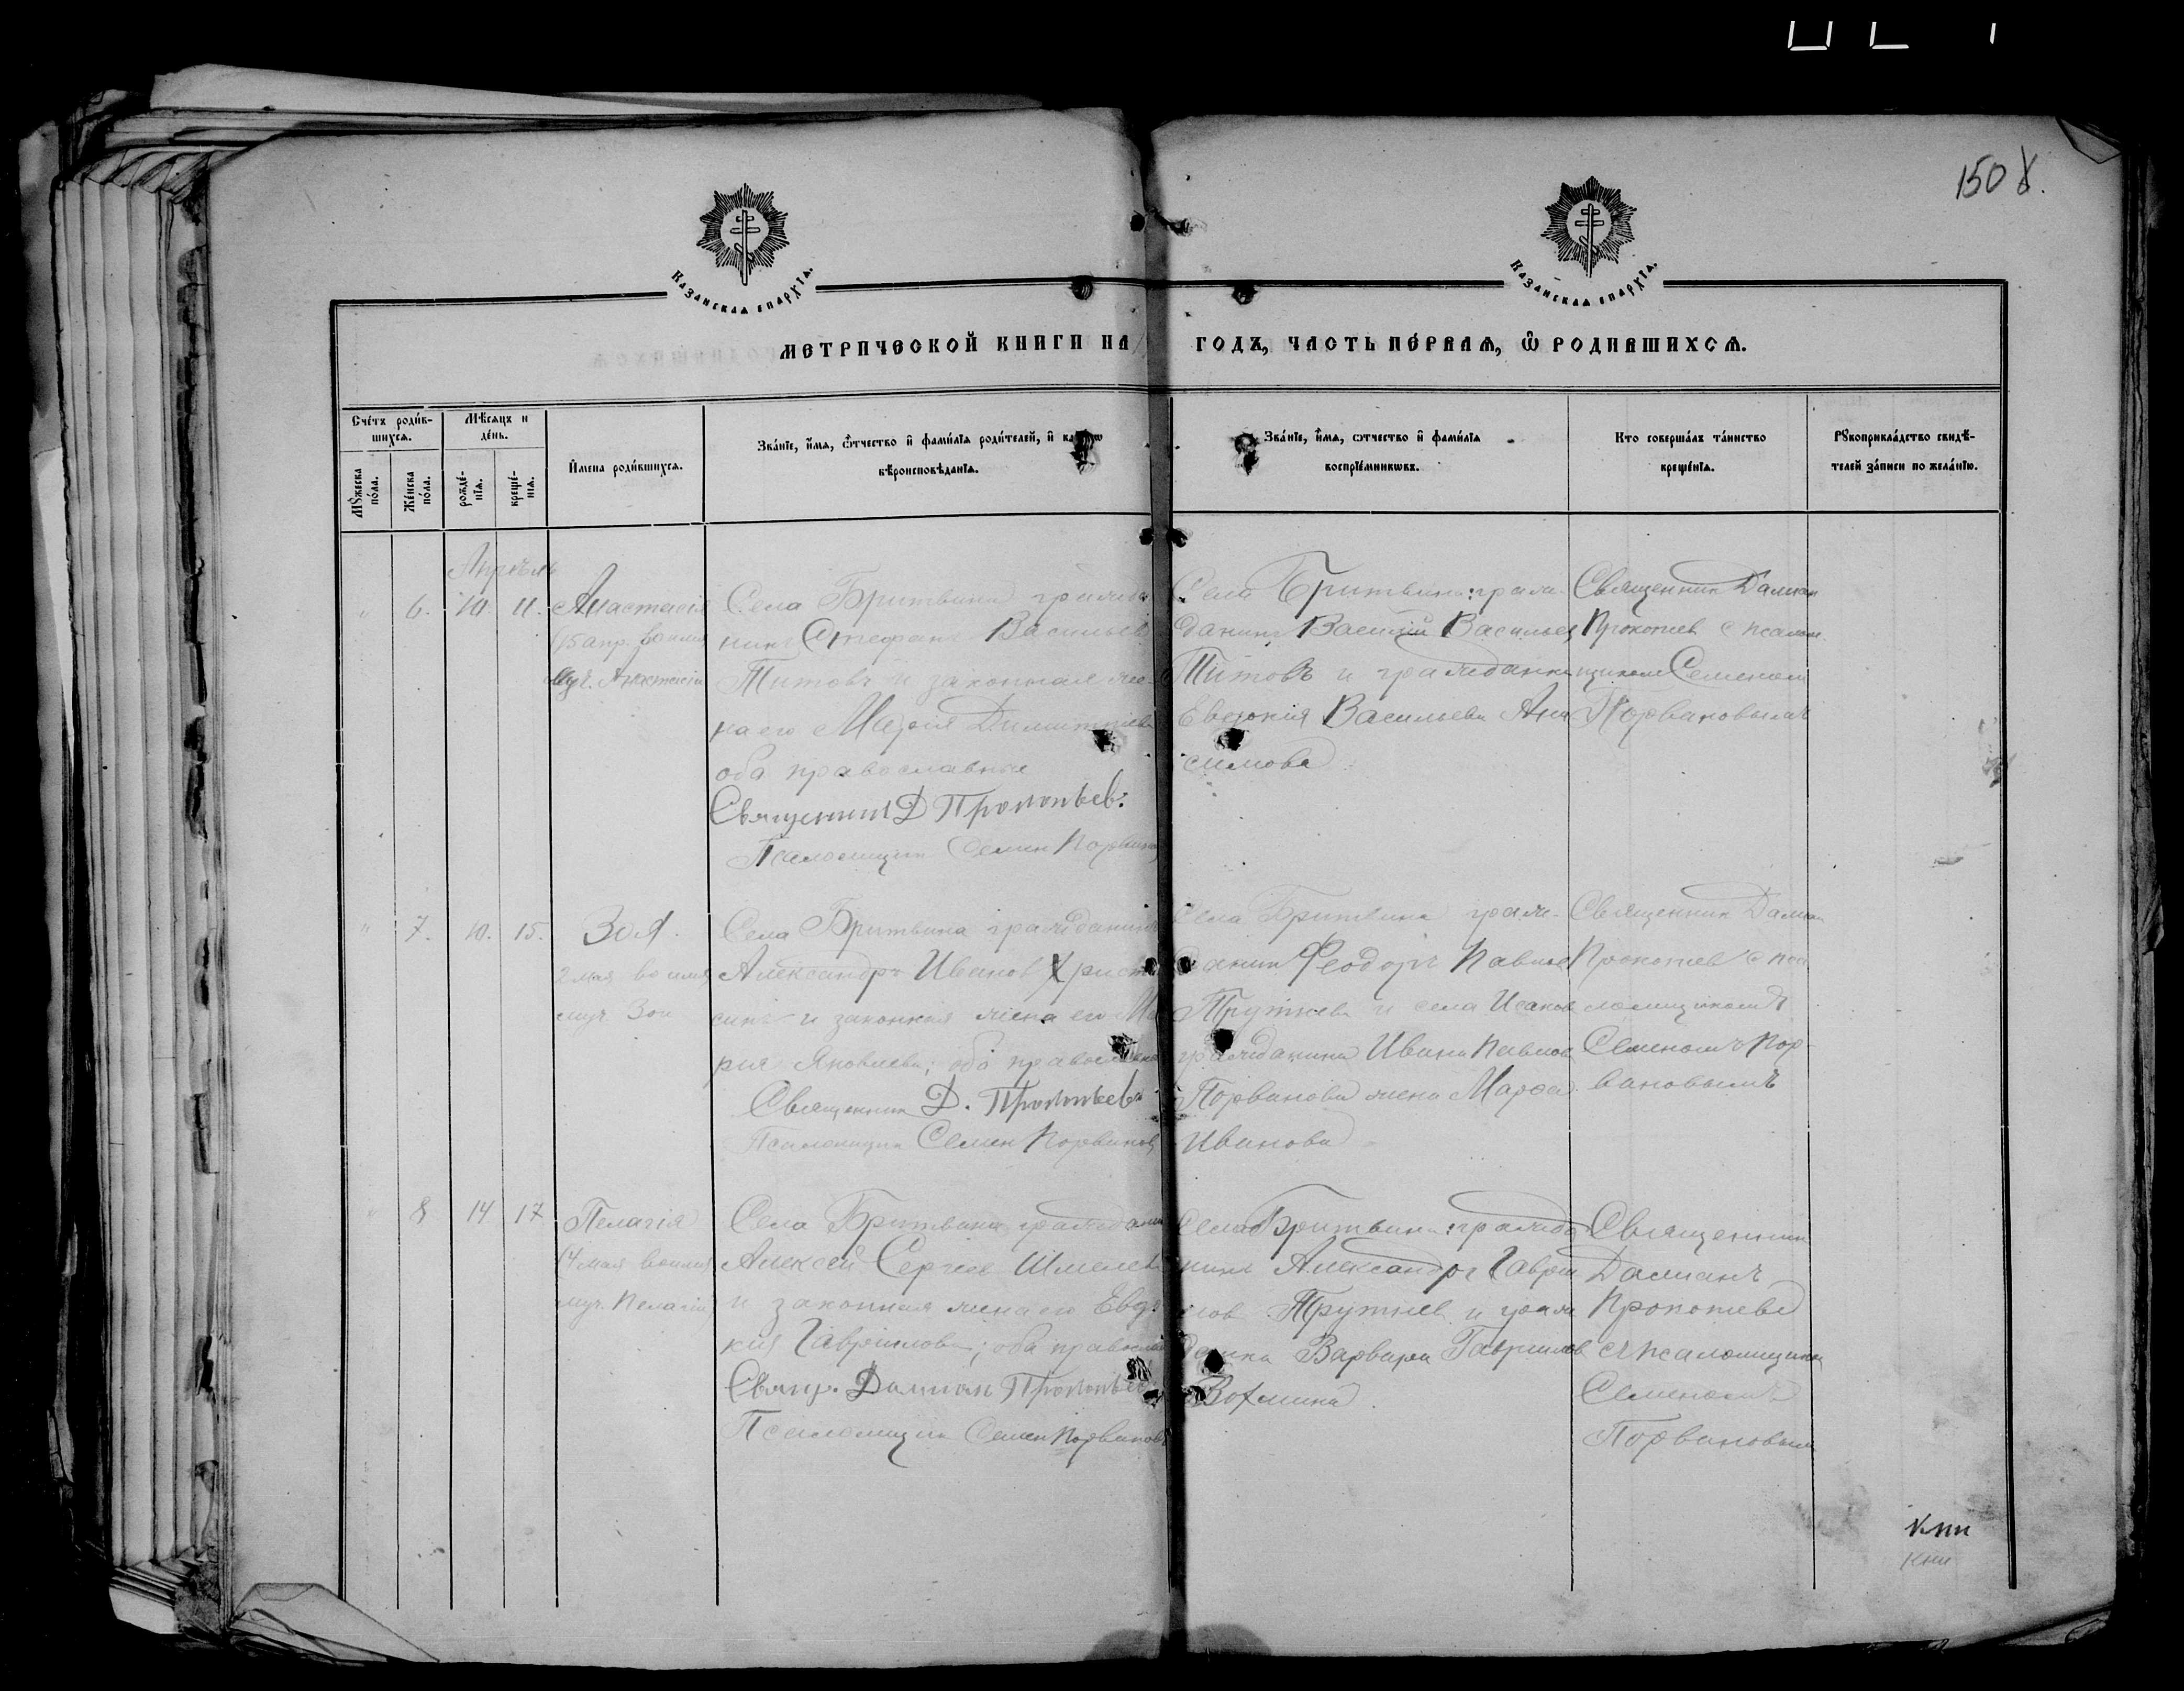 150
Казанская епархїа.
Казанская епархїа.
МЕТРИЧЕСКОЙ КНИГИ НА ГОДЪ, ЧАСТЬ ПЕ́РВАЯ, Ѡ РОДИВШИХСЯ.
Сче́тъ роди́в-
шихся.
Мѣсяцъ и
де́нь.
Мꙋ́жеска
по́ла.
Же́нска
по́ла.
рожде́-
нїя.
креще́-
нїя.
И́мена роди́вшихся.
Зва́нїе, и́мя, ѻ́тчество и҆ фами́лїя роди́телей, и҆
вѣроисповѣ́данїя.
Зва́нїе, и́мя, ѻтчество и҆ фами́лїя
воспрїе́мникѡвъ.
Кто соверша́лъ та́инство
креще́нїя.
Рꙋкоприкла́дство свидѣ́-
телей за́писи по жела́нїю.
Апрѣль
" 6. 10. 11. Анастасія
15 апр. во имя
муч. Анастасіи
Села Бритвина гражда
нинъ Стефанъ Васильев
Титовъ и законная же-
на его Марія Димитріева
оба православные
Священник Д Прокопьев.
Псаломщик Семен Порванов
Села Бритвина: граж-
данинъ Василій Васильев
Титовъ и гражданка
Евдокія Васильева Ани
симова
Священник Дамиан
Прокопиев с псалом
щиком Семеном
Порвановымъ
" 7. 10. 15. Зоя.
2 мая во имя
муч. Зои
Села Бритвина гражданинъ
Александръ Иванов Христо
синъ и законная жена его Ма
рия Яковлева; оба православные
Священник Д. Прокопьевъ
Псаломщик Семен Порванов
Села Бритвина граж-
данин Феодоръ Павлов
Трутнев и села Исаков
гражданина Ивана Павлов
Порванова жена Марѳа
Иванова
Священник Дамиан
Прокопиев с пса
ломщикомъ
Семеномъ Пор-
вановымъ
" 8 14 17 Пелагія
(4 мая во имя
муч. Пелагіи)
Села Бритвина граждани
Алексей Сергеев Шмелев
и законная жена его Евдо
кия Гавриилова; оба правосла
Свящ. Дамиан Прокопьев
Псаломщик Семен Порванов
Села Бритвина: гражда
нинъ Александръ Гаври
лов Трутнев и граж
данка Варвара Гаврилов
Вохмина.
Священник
Дамианъ
Прокопиев
съ псаломщиком
Семеномъ
Порвановым